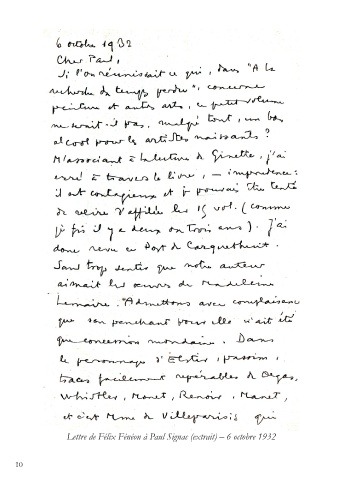 6 octobre 1932
Cher Paul,
Si l'on réunissait ce qui, dans "A la
recherche du temps perdu", concerne
peinture et autres arts, ce petit volume
ne serait-il pas, malgré tout, un bon
alcool pour les artistes naissants ?
M'associant à la lecture de Ginette, j'ai
erré à travers le livre, — imprudence :
il est contagieux et je pouvais être tenté
de relire d'affilée les 15 vol. (comme
je fis il y a deux ou trois ans). J'ai
donc revu ce Port de Carquethuit.
Sans trop
que notre auteur
aimait les œuvres de Madeleine
Lemaire. Admettons avec complaisance
que son penchant pour elle n'ait été
que concession mondaine. Dans
le personnage d'Elstir, passim,
traces facilement repérables de Degas,
Whistler, Monet, Renoir, Manet,
et c'est Mme de Villeparisis qui
Lettre de Félix Fénéon à Paul Signac (extrait) – 6 octobre 1932
10